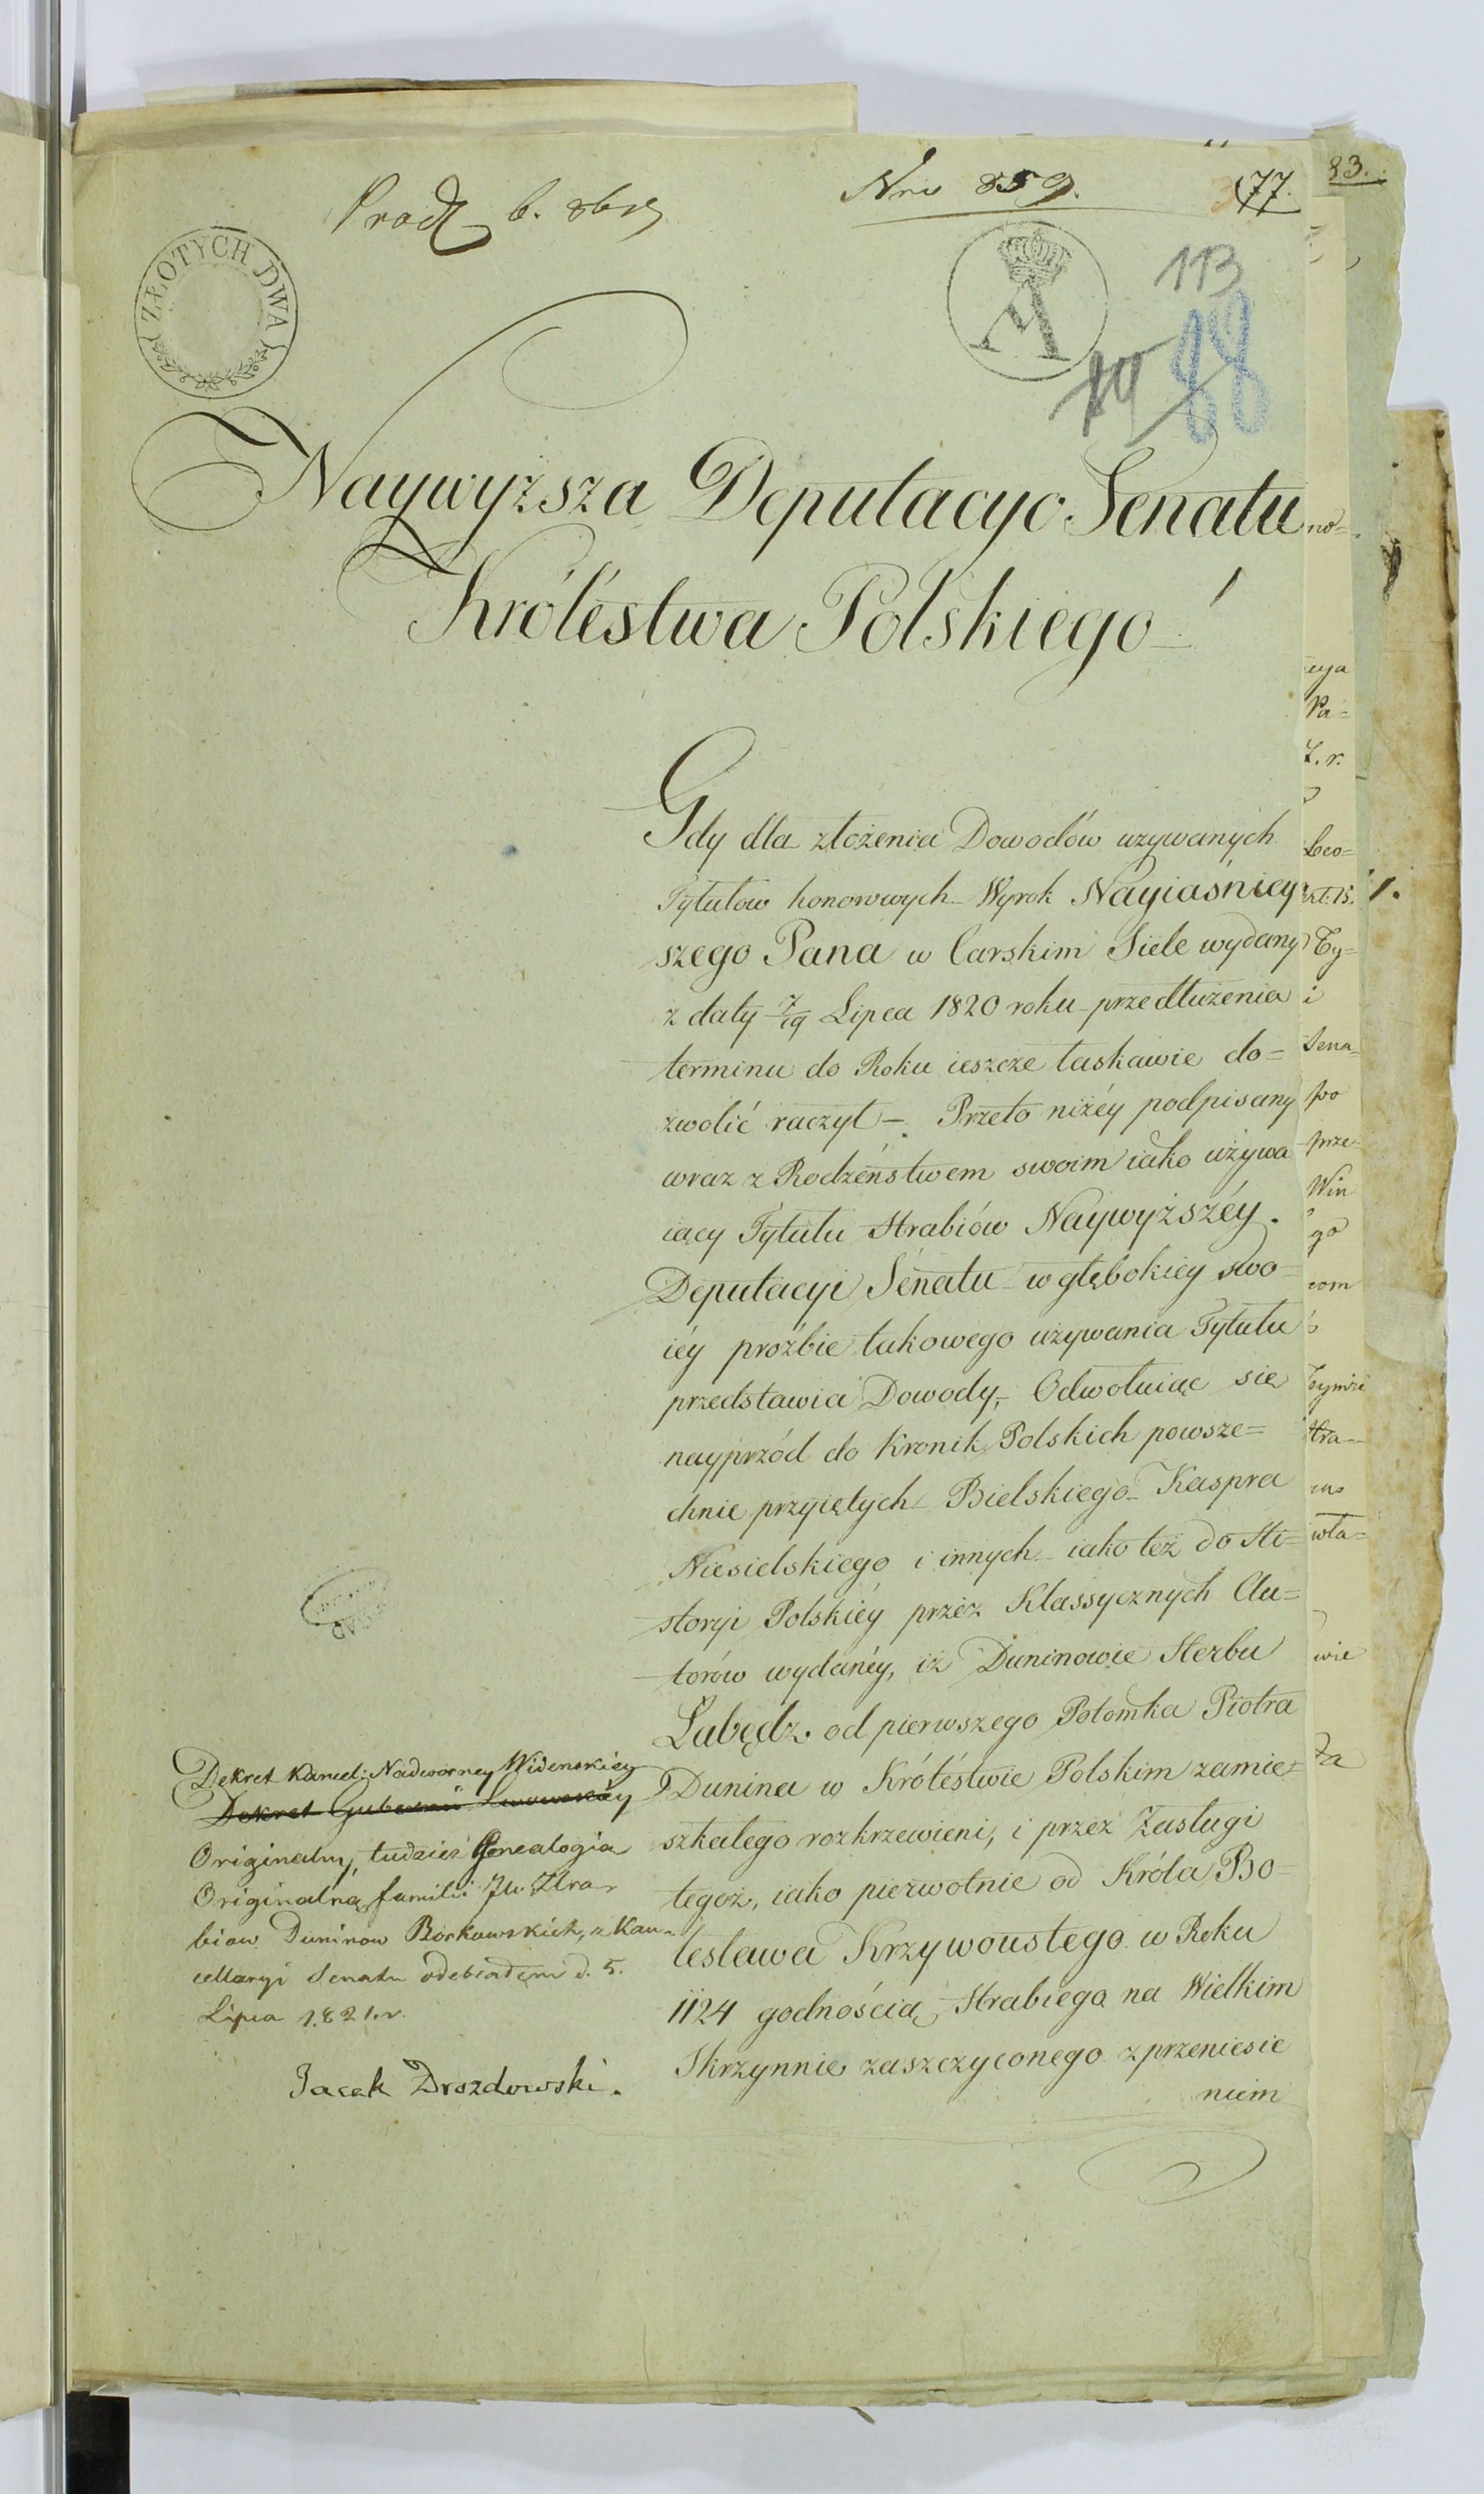 83.
Nro 859.
77.
Prod 6. 8br
ZŁOTYCH DWA
A
113
88
Naywyższa Deputacyo Senatu
Króléstwa Polskiego!
Gdy dla złożenia Dowodów uzywanych
Tytułow honorowych Wyrok Nayiaśniey
szego Pana w Carskim Siele wydany
z daty 7/19 Lipca 1820 roku przedłużenia
terminu do Roku ieszcze łaskawie do=
zwolić raczył –. Przeto niżéy podpisany
wraz z Rodzeństwem swoim iako używa
iący Tytułu Hrabiów Naywyższéy.
Deputacyi Senatu w głębokiey swo=
iéy proźbie takowego używania Tytułu
przedstawia Dowody, Odwołuiąc się
nayprzód do Kronik Polskich powsze=
chnie przyiętych Bielskiego Kaspra
Niesielskiego i innych iako też do Hi=
storyi Polskiéy przez Klassycznych Au=
torów wydanéy, iż Duninowie Herbu
Łabędz. od pierwszego Potomka Piotra
Dunina w Króléstwie Polskim zamie=
szkałego rozkrzewieni, i przez Zasługi
tegoż, iako pierwotnie od Króla Bo=
lesława Krzywoustego w Roku
1124 godnością Hrabiego na Wielkim
Skrzynnie zaszczyconego z przeniesie
niem
Dekret Kancel: Nadworney Widenskiéy
Dekret Gubernii Lwowskiéy
Originalny, tudzież Genealogia
Originalną familii JW. Hra-
biow Duninow Borkowskich, z Kan-
cellaryi Senatu odebrałem d. 5.
Lipca 1821. r.
Jacek Drozdowski.
no=
cya
Pa=
Z. r.
Leo=
Art: 15.
1.
Ty=
i
Sena=
po
prze
Win
go
com
Hra=
wła=
wie
Za